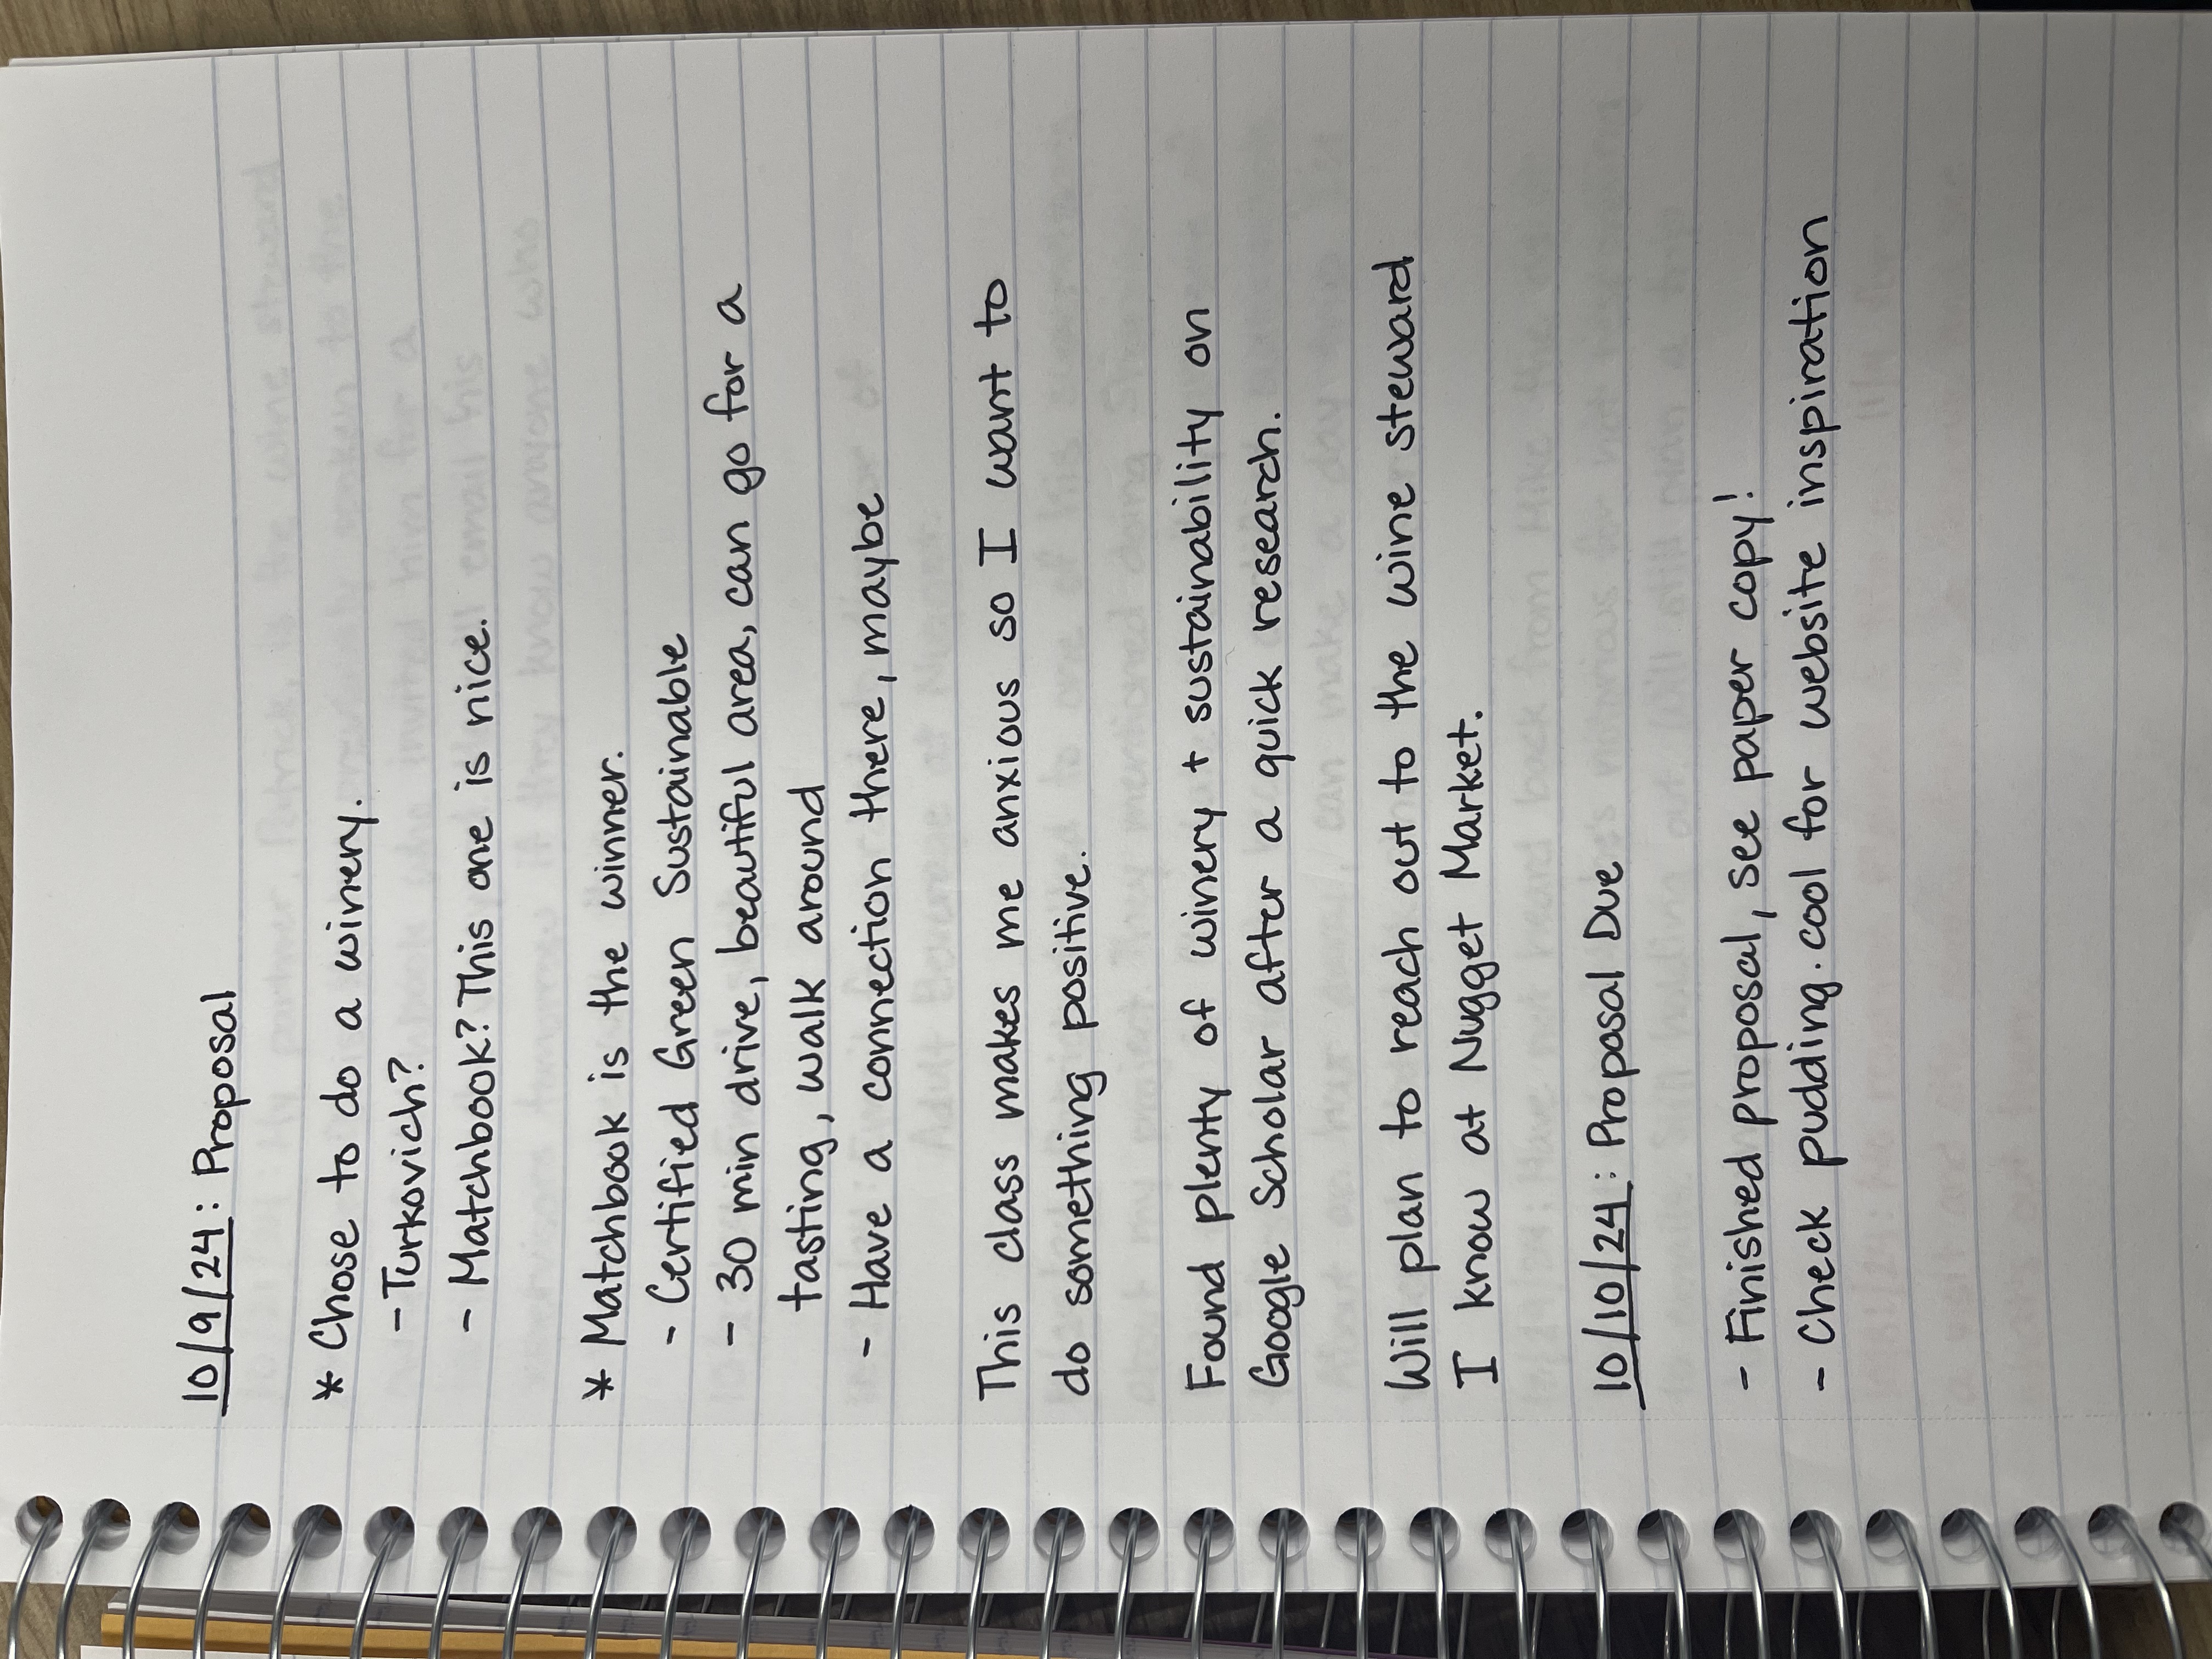 10/9/24: Proposal
* Chose to do a winery.
- Turkovich?
- Matchbook? This one is nice.
* Matchbook is the winner.
- Certified Green Sustainable
- 30 min drive, beautiful area, can go for a
tasting, walk around
- Have a connection there, maybe
This class makes me anxious so I want to
do something positive.
Found plenty of winery + sustainability on
Google Scholar after a quick research.
Will plan to reach out to the wine steward
I know at Nugget Market.
10/10/24: Proposal Due
- Finished proposal, see paper copy!
- Check pudding.cool for website inspiration